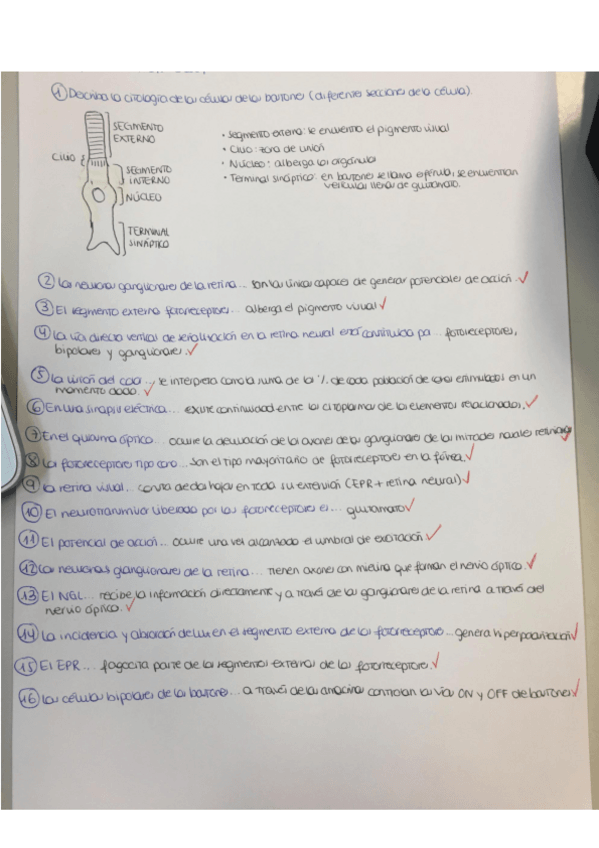 ① Describa la citología de las células de los bastones (diferentes secciones de la célula)
SEGMENTO
EXTERNO
CILIO
SEGMENTO
INTERNO
NÚCLEO
TERMINAL
SINÁPTICO
• Segmento externo: se encuentra el pigmento visual
• Cilio: zona de unión
• Núcleo: alberga los orgánulos
• Terminal sináptico: en bastones se llama esférula, se encuentran
vesículas llenas de glutamato.
② Las neuronas ganglionares de la retina... son las únicas capaces de generar potenciales de acción.
③ El segmento externo fotorreceptores... alberga el pigmento visual
④ La vía directa vertical de señalización en la retina neural está constituida por... fotorreceptores,
bipolares y ganglionares.
⑤ La visión del color... se interpreta como la suma de los % de cada población de conos estimulados en un
momento dado.
⑥ En una sinapsis eléctrica... existe continuidad entre los citoplasmas de los elementos relacionados.
⑦ En el quiasma óptico... ocurre la decusación de los axones de las ganglionares de las mitades nasales retinianas
⑧ Los fotorreceptores tipo cono... son el tipo mayoritario de fotorreceptores en la fóvea.
⑨ La retina visual... consta de dos hojas en toda su extensión (EPR + retina neural)
⑩ El neurotransmisor liberado por los fotorreceptores es... glutamato
⑪ El potencial de acción... ocurre una vez alcanzado el umbral de excitación
⑫ Las neuronas ganglionares de la retina... tienen axones con mielina que forman el nervio óptico.
⑬ El NGL... recibe la información directamente y a través de las ganglionares de la retina a través del
nervio óptico.
⑭ La incidencia y absorción de luz en el segmento externo de los fotorreceptores... genera hiperpolarización
⑮ El EPR... fagocita parte de los segmentos externos de los fotorreceptores.
⑯ Las células bipolares de los bastones... a través de las amacrinas controlan las vías ON y OFF de bastones